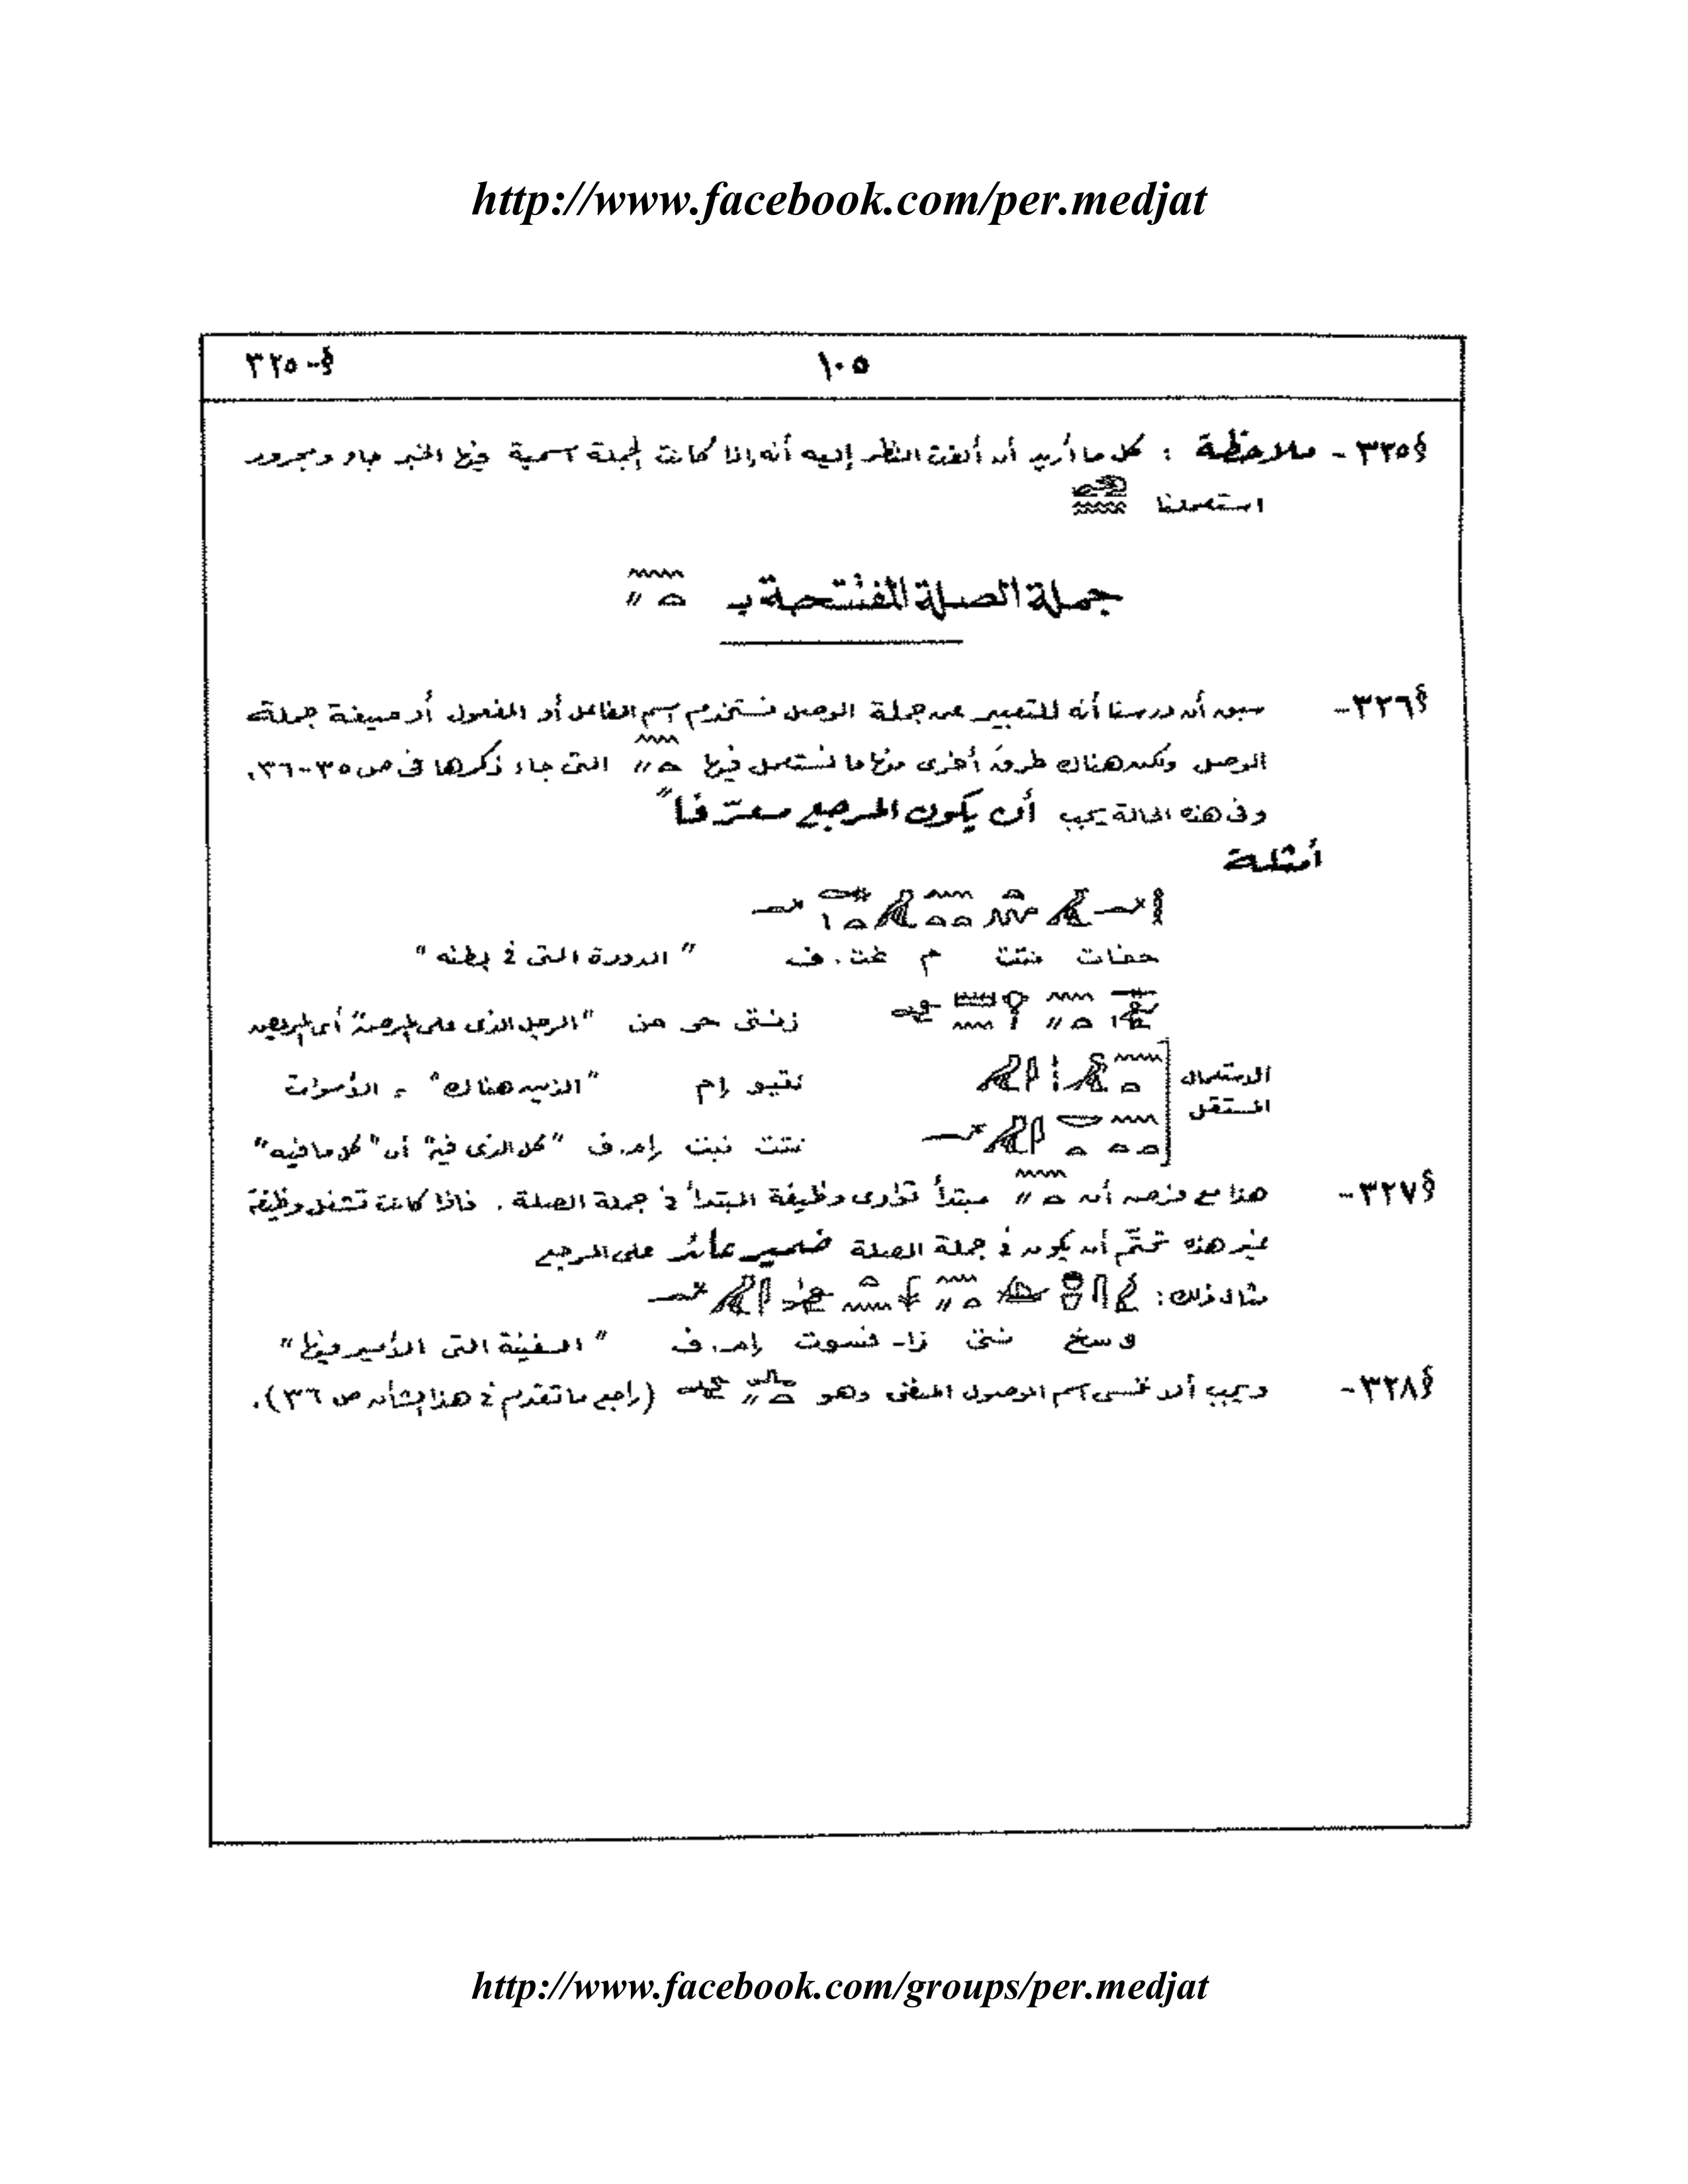 http://www.facebook.com/per.medjat
§-٣٢٥ ١٠٥
§٣٢٥- ملاحظة : كل ما أريد أن ألفت النظر إليه أنه إذا كانت الجملة اسمية فيها الخبر جار ومجرور
استعملنا
جملة الصلة المفتتحة بـ
§٣٢٦- سبق أن درسنا أنه للتعبير عن جملة الوصل نستخدم اسم الفاعل أو المفعول أو صيغة جملة
الوصل ولكن هناك طرق أخرى منها ما نستعمل فيها التى جاء ذكرها فى ص ٣٥-٣٦.
وفى هذه الحالة يجب أن يكون المرجع معرّفاً
أمثلة
حفات نتت م خت.ف " الدودة التى فى بطنه "
زنتى حر من "الرجل الذى على
الاستعمال
المستقل
نتيو إم "الذين هناك" = الأموات
نتت نبت إم.ف "كل الذى فيه" أى "كل ما فيه"
§٣٢٧- هذا مع فرض أن مبتدأ توازى وظيفة المبتدأ فى جملة الصلة . فاذا كانت تشغل وظيفة
غير هذه تحتّم أن يكون فى جملة الصلة ضمير عائد على المرجع
مثال ذلك :
وسخ نتى زا- نسوت إم.ف " السفينة التى الأمير فيها "
§٣٢٨- ويجب ألا ننسى اسم الموصول المنفى وهو (راجع ما تقدم فى هذا الشأن ص ٣٦).
http://www.facebook.com/groups/per.medjat